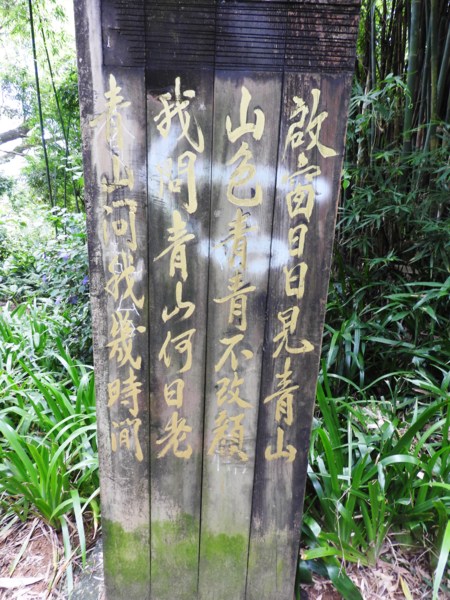 啟窗日日見青山
山色青青不改顏
我問青山何日老
青山问我幾時間